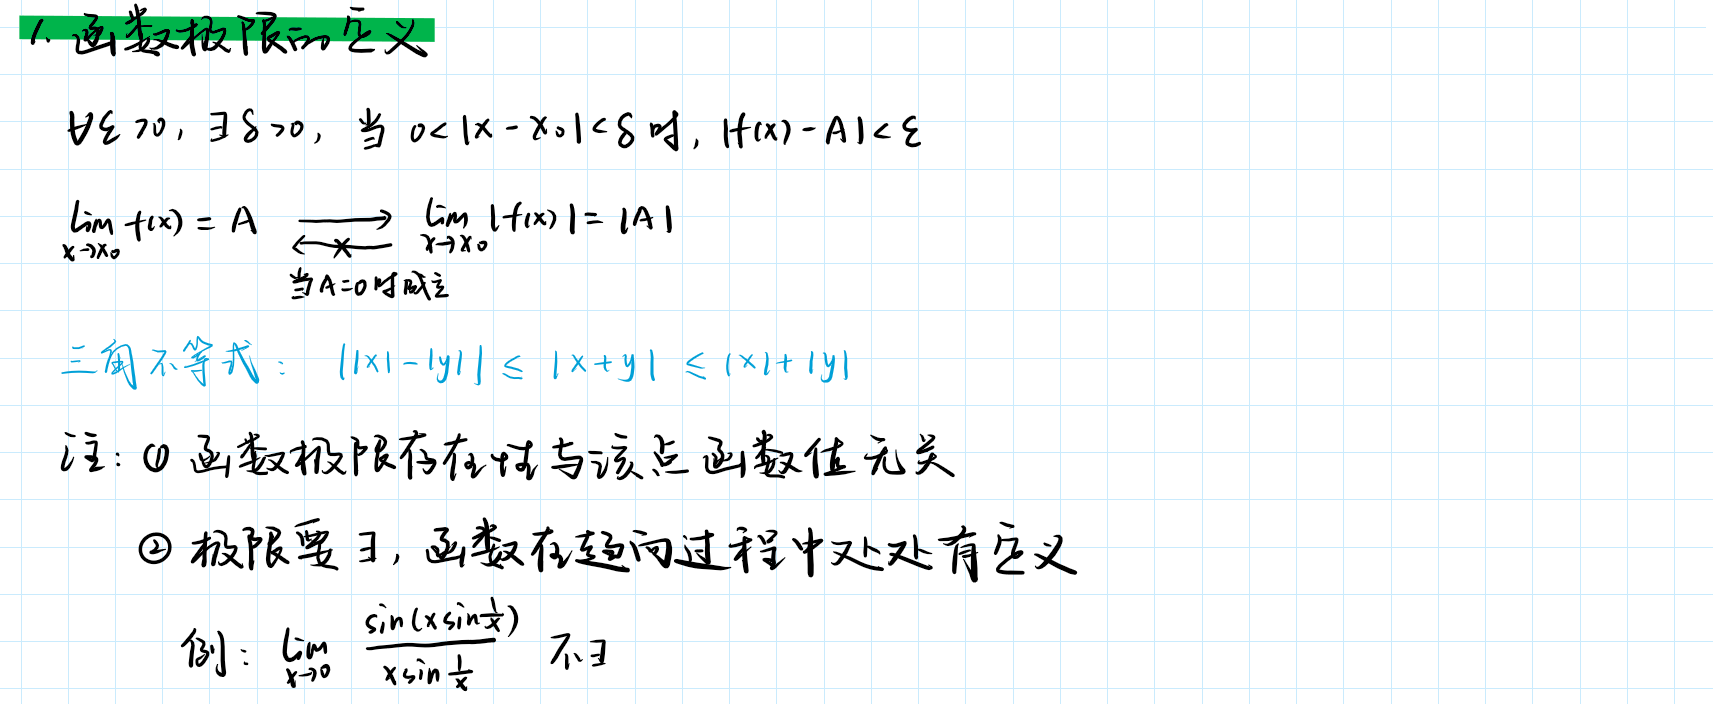 1. 函数极限的定义
∀ε>0, ∃δ>0, 当 0<|x-x₀|<δ时, |f(x)-A|<ε
lim_{x→x₀} f(x) = A ⟶ ⟵× lim_{x→x₀} |f(x)| = |A|
当A=0时成立
三角不等式: ||x|-|y|| ≤ |x+y| ≤ |x|+|y|
注: ① 函数极限存在性与该点函数值无关
② 极限要∃, 函数在趋向过程中处处有定义
例: lim_{x→0} sin(x sin 1/x) / (x sin 1/x) 不∃